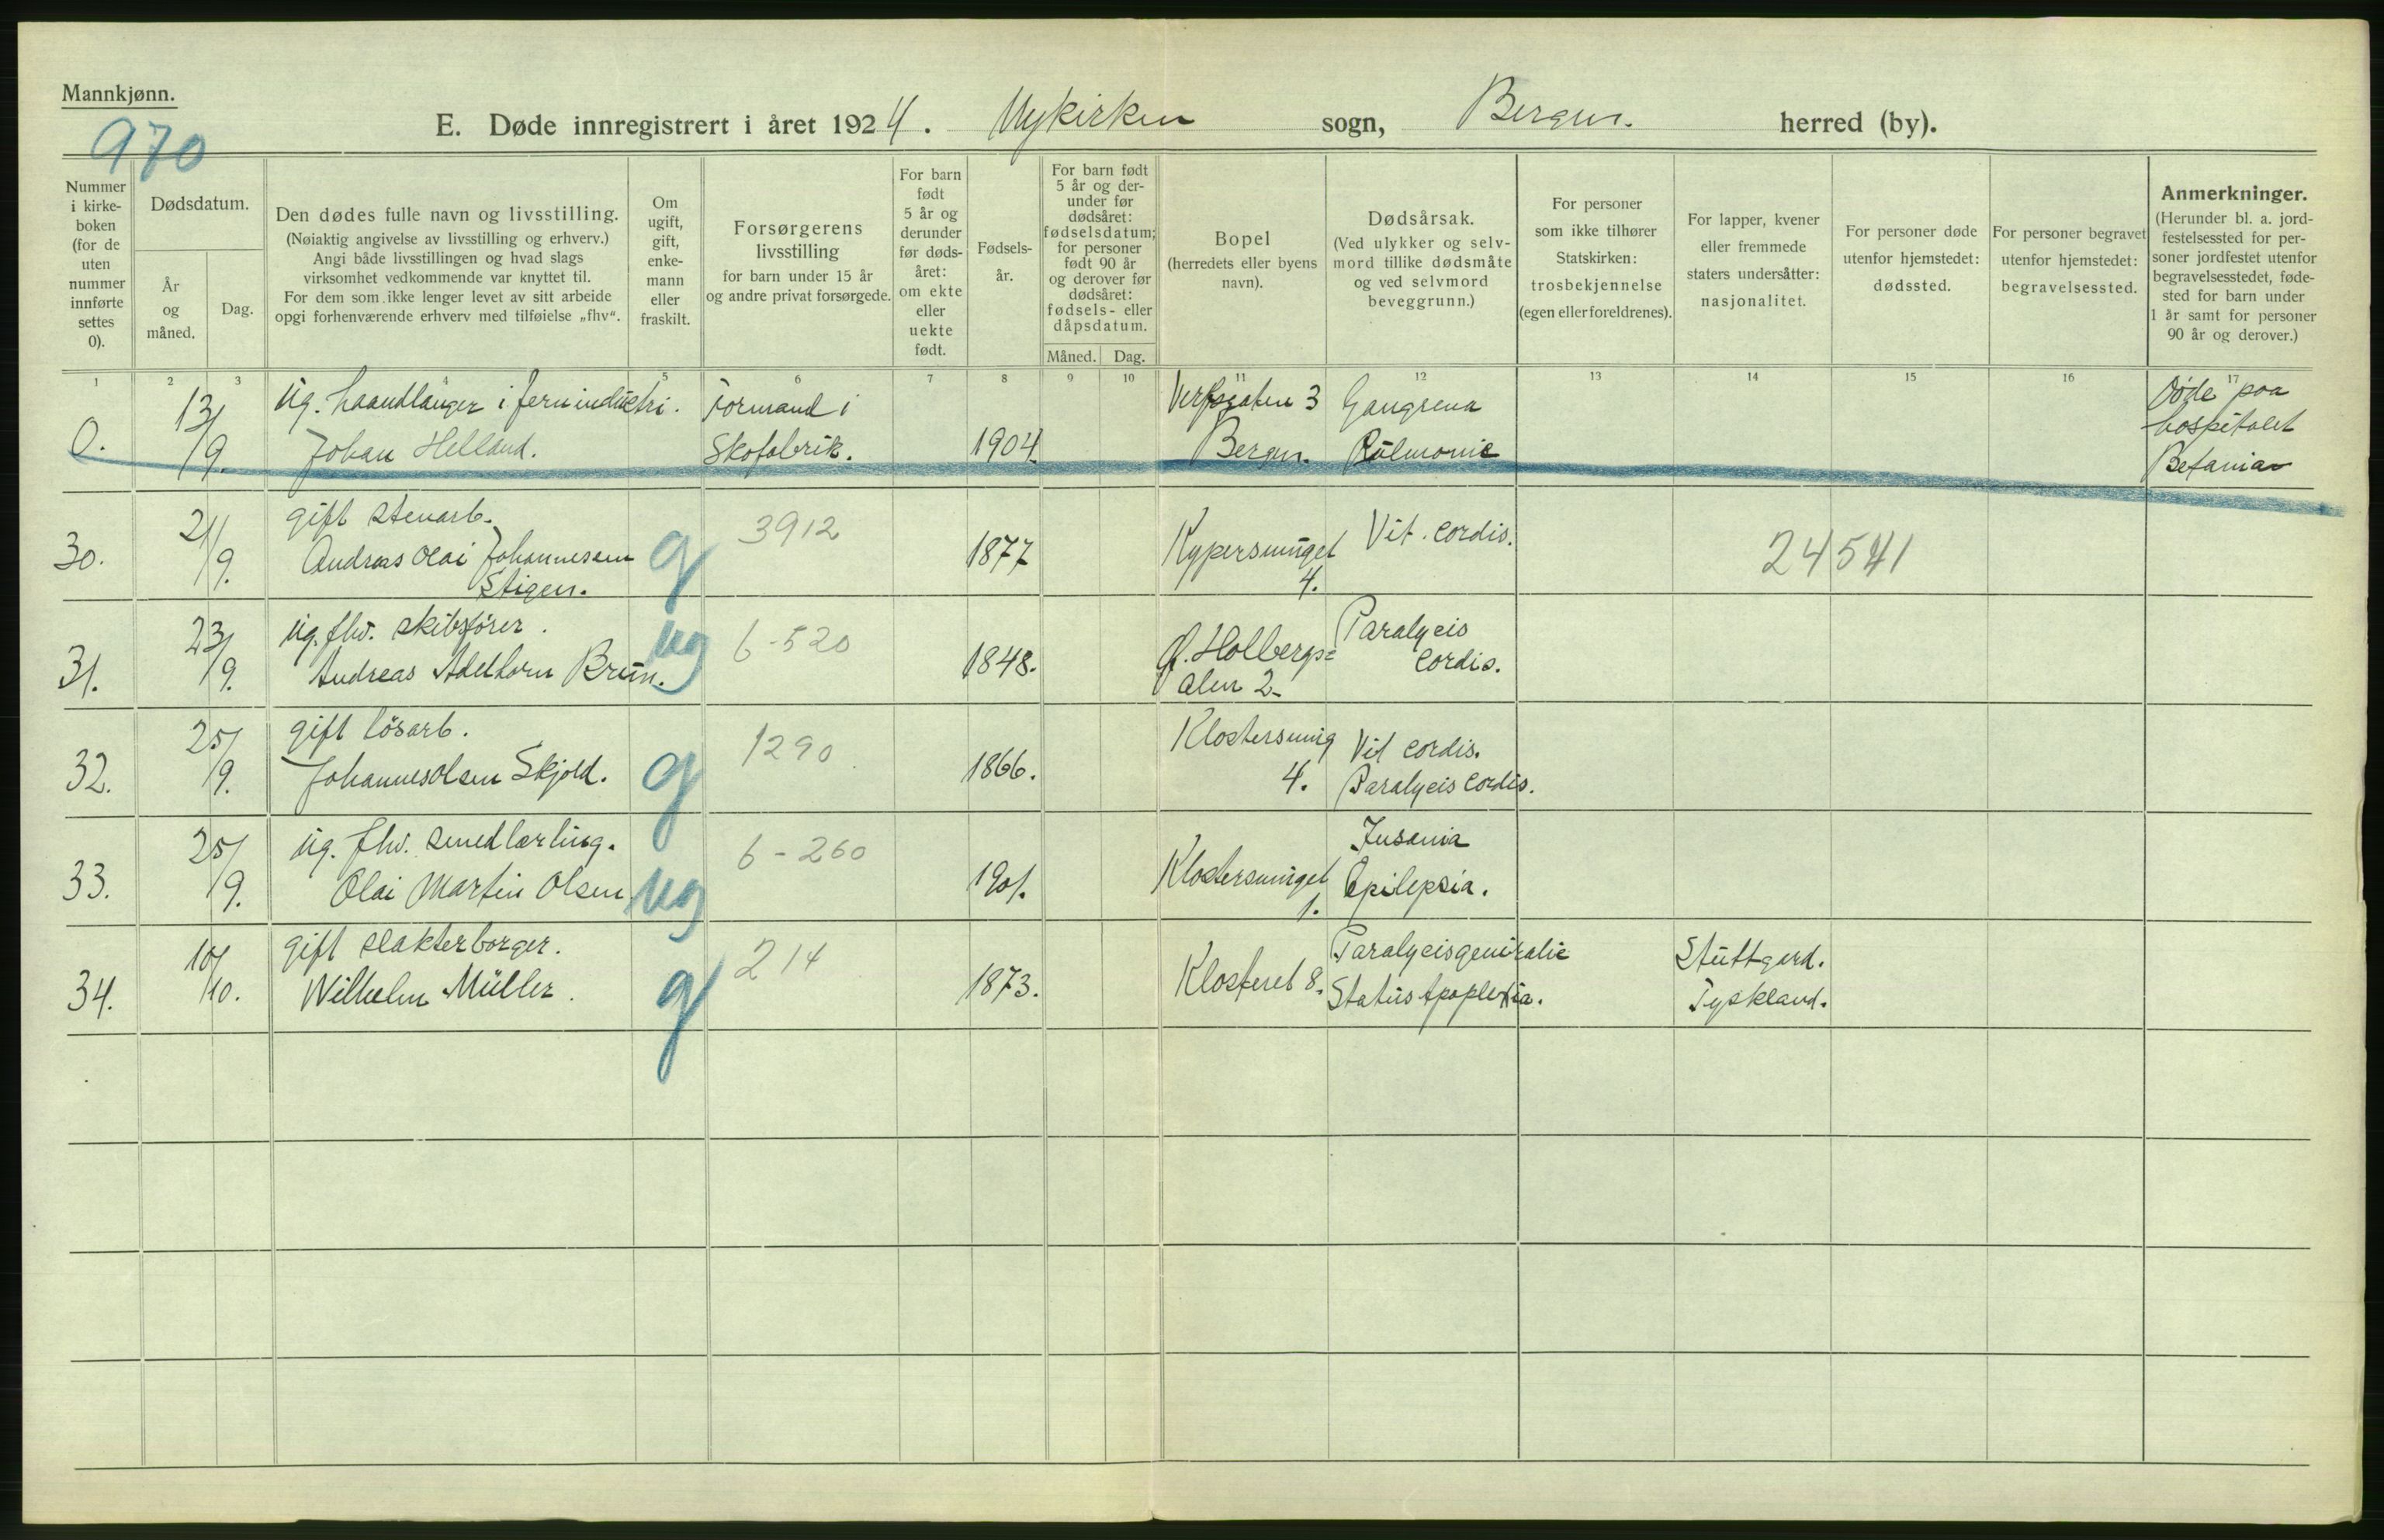 Mannkjønn.
970
E. Døde innregistrert i året 1924. Nykirken sogn, Bergen. herred (by).
Nummer i kirke-boken (for de uten nummer innførte settes 0).
Dødsdatum.
År og måned.
Dag.
Den dødes fulle navn og livsstilling.
(Nøiaktig angivelse av livsstilling og erhverv.)
Angi både livsstillingen og hvad slags
virksomhet vedkommende var knyttet til.
For dem som ikke lenger levet av sitt arbeide
opgi forhenværende erhverv med tilføielse „fhv“.
Om ugift, gift, enke-mann eller fraskilt.
Forsørgerens
livsstilling
for barn under 15 år
og andre privat forsørgede.
For barn født 5 år og derunder før døds-året: om ekte eller uekte født.
Fødsels-år.
For barn født 5 år og der-under før dødsåret: fødselsdatum; for personer født 90 år og derover før dødsåret: fødsels- eller dåpsdatum.
Måned. Dag.
Bopel
(herredets eller byens
navn).
Dødsårsak.
(Ved ulykker og selv-
mord tillike dødsmåte
og ved selvmord
beveggrunn.)
For personer
som ikke tilhører
Statskirken:
trosbekjennelse
(egen eller foreldrenes).
For lapper, kvener
eller fremmede
staters undersåtter:
nasjonalitet.
For personer døde
utenfor hjemstedet:
dødssted.
For personer begravet
utenfor hjemstedet:
begravelsessted.
Anmerkninger.
(Herunder bl. a. jord-
festelsessted for per-
soner jordfestet utenfor
begravelsesstedet, føde-
sted for barn under
1 år samt for personer
90 år og derover.)
1 2 3 5 6 7 8 9 10 11 12 13 14 15 16 17
0. 13/9. ug. haandlanger i jernindustri.
Johan Helland.
Formand i
Skofabrik.
1904.
Verfsgaten 3
Bergen.
Gangrena
Pulmonis
Døde paa
hospitalet
Betania
30. 21/9. gift stenarb.
Andreas Olai Johannesen
Stigen.
g 3912 1877
Kypersmuget
4.
Vit. cordis.
24541
31. 23/9. ug. fhv. skibsfører.
Andreas Adelhorn Brun.
ug 6-520 1848.
G. Holbergs=
alm 2.
Paralysis
cordis.
32. 25/9. gift løsarb.
Johannes Olsen Skjold.
g 1290 1866.
Klostersmug
4.
Vit cordis.
Paralysis cordis.
33. 25/9. ug. fhv. smedlærling.
Olai Martin Olsen
ug 6-260 1901.
Klostersmuget
1.
Insania
Epilepsia.
34. 10/10. gift slakterborger.
Wilhelm Müller.
g 214 1873.
Klosteret 8.
Paralysis generalis
Status Apoplexia.
Stuttgard.
Tyskland.